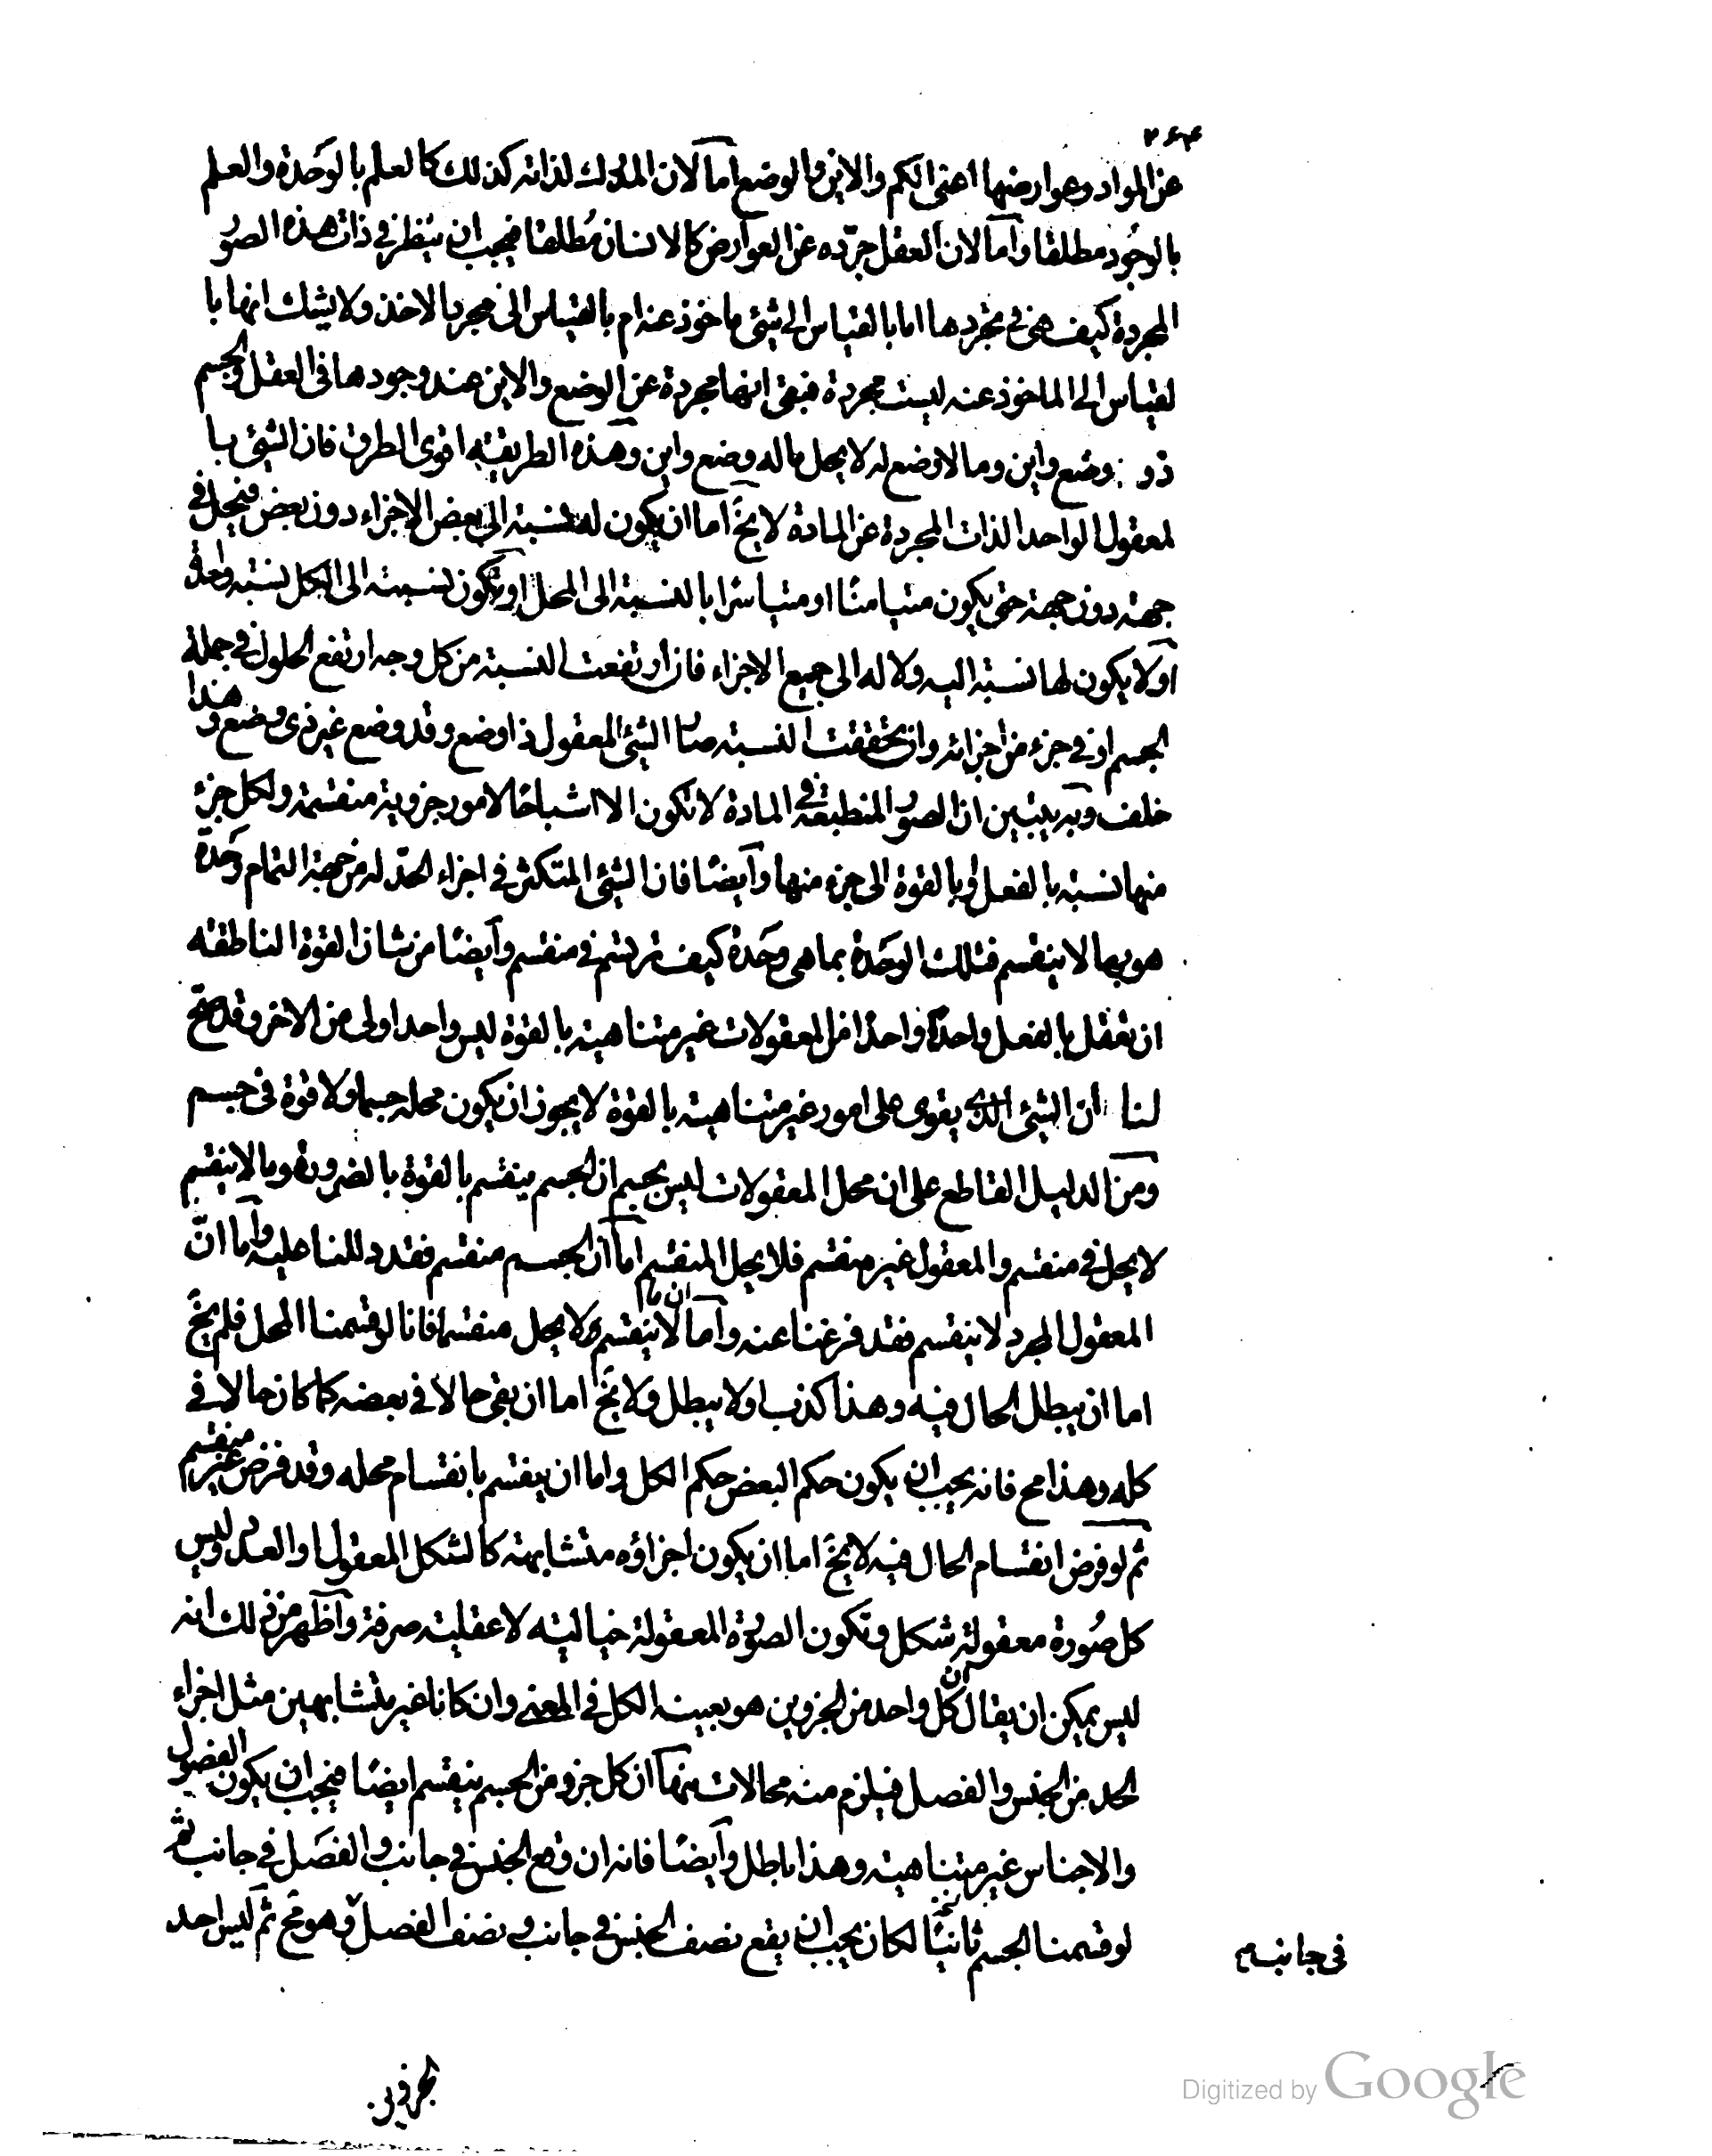 ٢۶۴
عن المواد وعوارضها اعنى الكم والاين والوضع اما لان المدرك لذاته كذلك كالعلم بالوَحَدة والعلم
بالوجُود مطلقا واما لان العقل جرّده عن العوارض كالانسان مُطلقا فيجب ان يُنظر فى ذات هذه الصوُر
المجردة كيف هى فى تجردها اما بالقياس الى شئ ماخوذ عنه ام بالقياس الى مجرد الاخذ ولا يشك انها با
لقياس الى الماخوذ عنه ليست مجردة فبقى انها مجردة عن الوضع والاين عند وجودها فى العقل والجسم
ذو وضع واين وما لا وضع له لا يحل ما له وضع واين وهذه الطريقة اقوى الطرق فان الشئ با
لمعقول الواحد الذات المجردة عن المادة لا يخ اما ان يكون له نسبة الى بعض الاجزاء دون بعض فيحل فى
جهة دون جهة حتى يكون متيامنًا او متياسرًا بالنسبة الى المحل او تكون نسبته الى الكل نسبة واحدة
اولا يكون لها نسبة اليه ولا له الى جميع الاجزاء فان ارتفعت النسبة من كل وجه ارتفع الحلول فى جملة
الجسم او فى جزء من اجزائه وان تحققت النسبة صار الشئ المعقول ذا وضع وقد وضع غير ذى وضع وهذا
خلف وبه يتبين ان الصوُر المنطبعة فى المادة لا تكون الا اشباحًا لامور جزوية منقسمة ولكل جزء
منها نسبة بالفعل او بالقوة الى جزء منها وايضًا فان الشئ المتكثر فى اجزاء الحدّ له من جهة التمام وَحَدة
هو بها لا ينقسم فتلك الوَحَدة بما هى وحَدة كيف ترتسم فى منقسم وايضًا من شان القوة الناطقة
ان تعقل بالفعل واحدًا واحدًا من المعقولات غير متناهية بالقوة ليس واحد اولى من الاخر وقد صحّ
لنا ان الشئ الذى يقوى على امور غير متناهية بالقوة لا يجوز ان يكون محله جسما ولا قوة فى جسم
ومن الدليل القاطع على ان محل المعقولات ليس بجسم ان الجسم ينقسم بالقوة بالضرورة وما لا ينقسم
لا يحل فى منقسم والمعقول غير منقسم فلا يحل المنقسم اما ان الجسم منقسم فقد دللنا عليه واما انّ
المعقول المجرد لا ينقسم فقد فرغنا عنه واما ان ما لا ينقسم لا يحل منقسما فانا لو قسمنا المحل فلم يخ
اما ان يبطل الحال فيه وهذا كذب او لا يبطل ولا يخ اما ان بقى حالا فى بعضه كما كان حالا فى
كله وهذا مح فانه يجب ان يكون حكم البعض حكم الكل واما ان ينقسم بانقسام محله وقد فرض غير منقسم
ثم لو فرض انقسام الحال فيه لا يخ اما ان يكون اجزاؤه متشابهة كالشكل المعقول او العدد وليس
كل صُورة معقولة شكل وتكون الصورة المعقولة خيالية لا عقلية صرفة واظهر من ذلك انه
ليس يمكن ان يقال ان كل واحد من الجزوين هو بعينه الكل فى المعنى وان كانا غير متشابهين مثل اجزاء
الحد من الجنس والفصل فيلزم منه محالات منها ان كل جزو من الجسم ينقسم ايضًا فيجب ان يكون الفصول
والاجناس غير متناهية وهذا باطل وايضًا فانه ان وقع الجنس فى جانب والفصَل فى جانب ثم
لو قسمنا الجسم ثانيًا لكان يجب ان يقع نصف الجنس فى جانب ونصف الفصل وهو مح ثم ليس احد
فى جانب
الجزوين